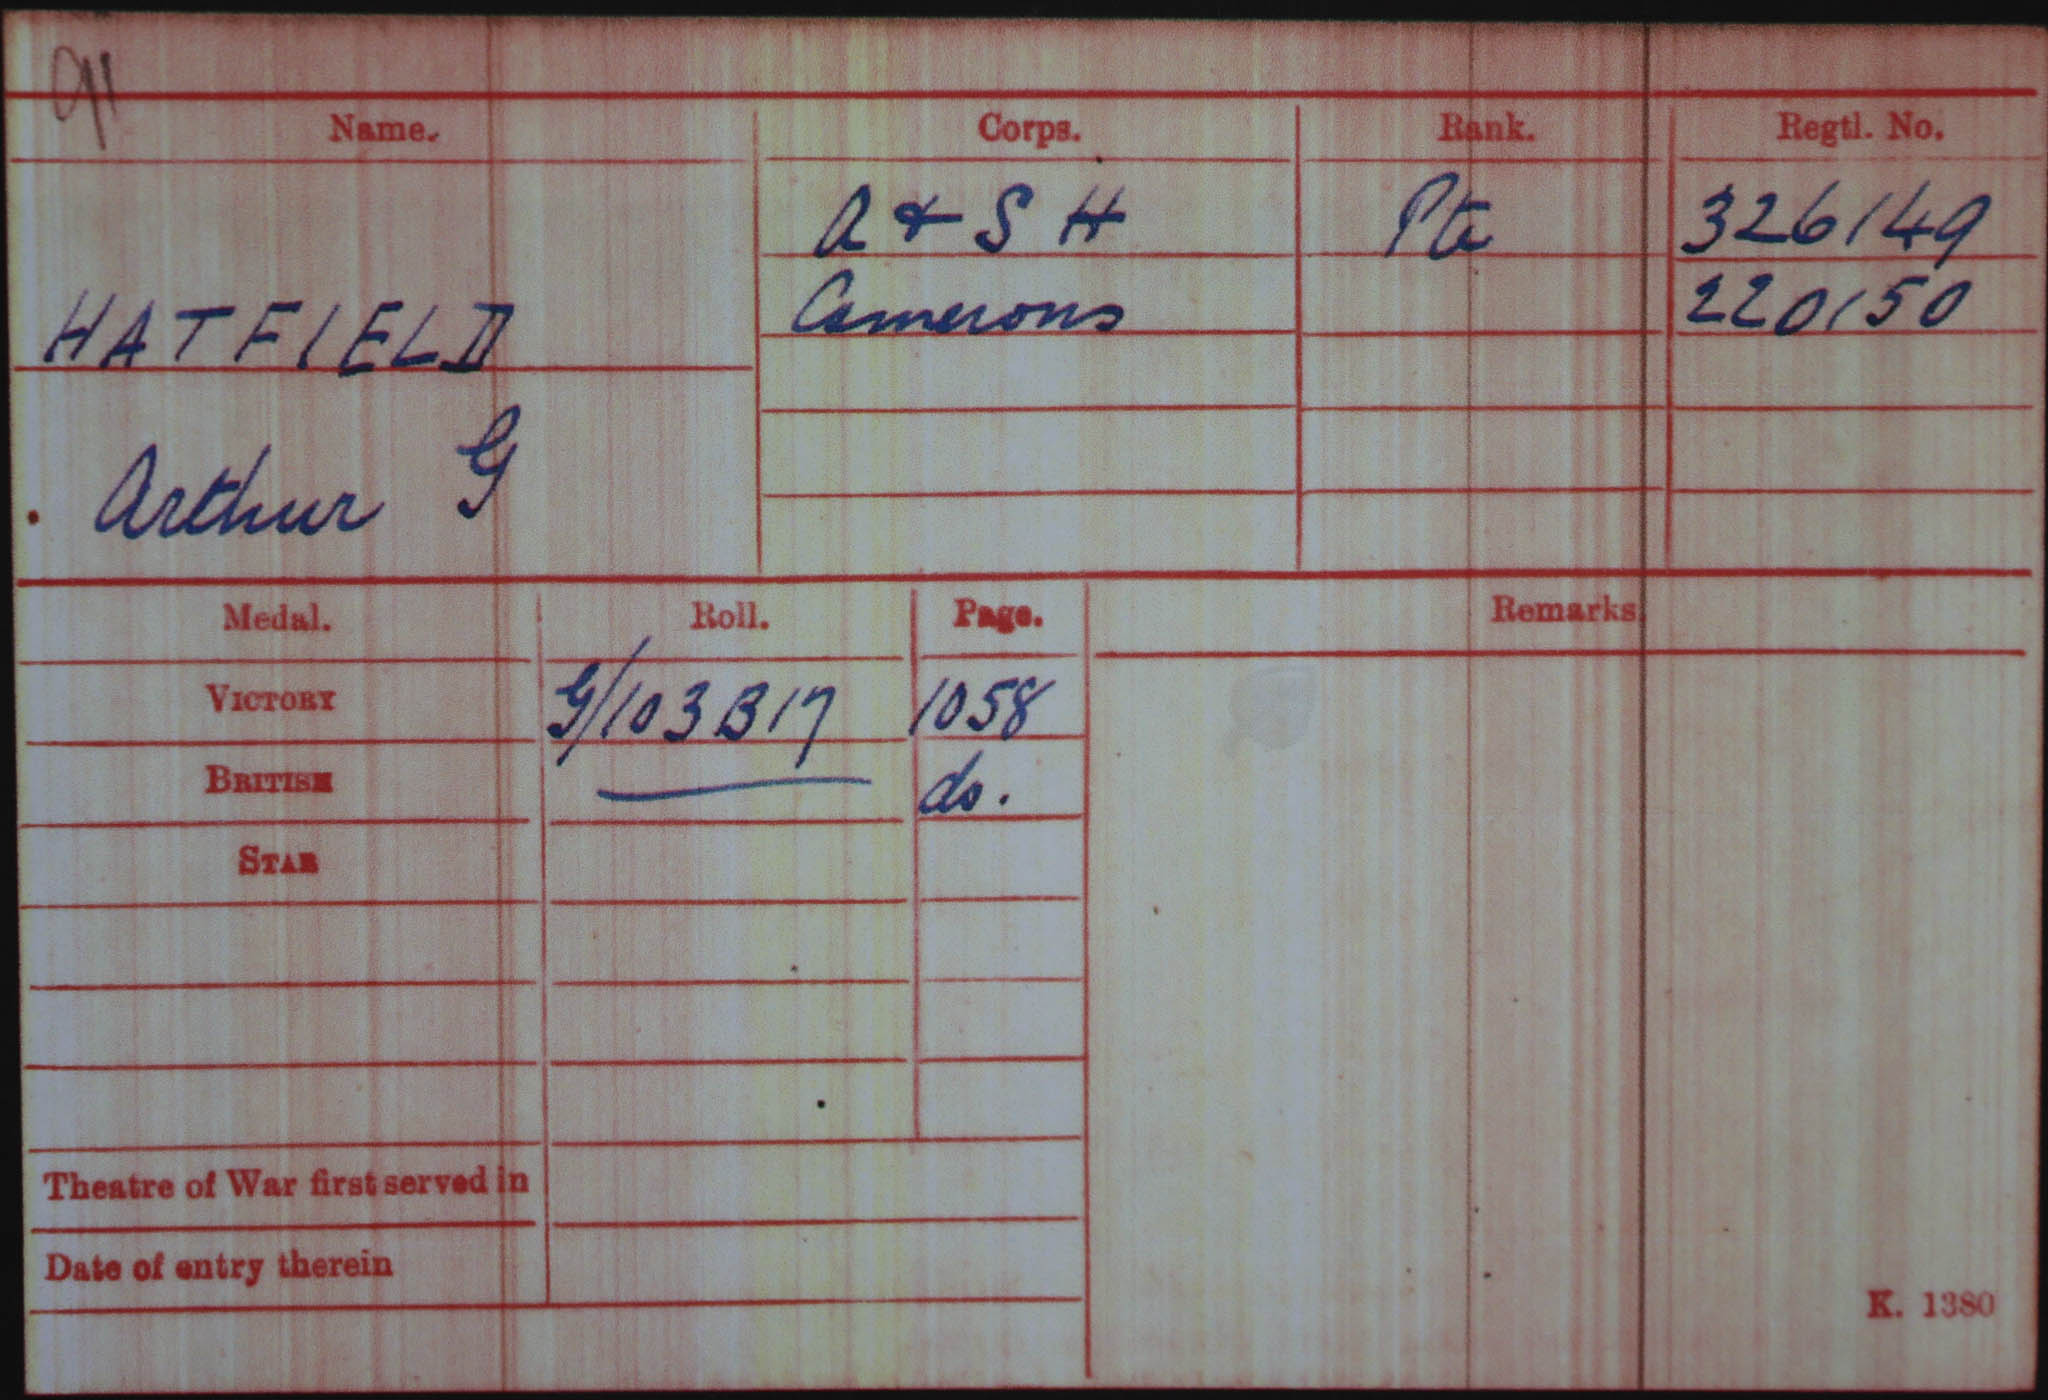 911
Name. Corps. Rank. Regtl. No.
A & S H Pte 326149
HATFIELD Camerons 220150
Arthur G
Medal. Roll. Page. Remarks.
VICTORY G/103B17 1058
BRITISH do.
STAR
Theatre of War first served in
Date of entry therein
K. 1380